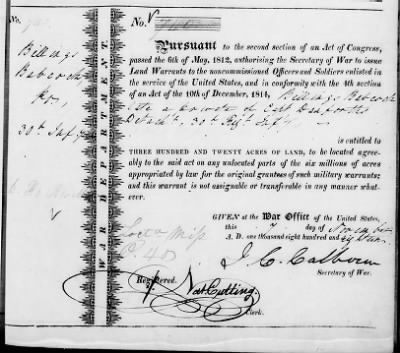 No.
Pursuant to the second section of an Act of Congress,
passed the 6th of May, 1812, authorising the Secretary of War to issue
Land Warrants to the noncommissioned Officers and Soldiers enlisted in
the service of the United States, and in conformity with the 4th section
of an Act of the 10th of December, 1814, Billings Babcock
late a private of Capt Danforths
Detacht. 30th Regt Infy
is entitled to
THREE HUNDRED AND TWENTY ACRES OF LAND, to be located agreeably
to the said act on any unlocated parts of the six millions of acres
appropriated by law for the original grantees of such military warrants;
and this warrant is not assignable or transferable in any manner what-
ever.
GIVEN at the War Office of the United States,
this 7 day of November
A. D. one thousand eight hundred and
J. C. Calhoun
Secretary of War.
Registered.
Nat Cutting
Clerk.
WAR DEPARTMENT.
Billings
Babcock
30th Infy